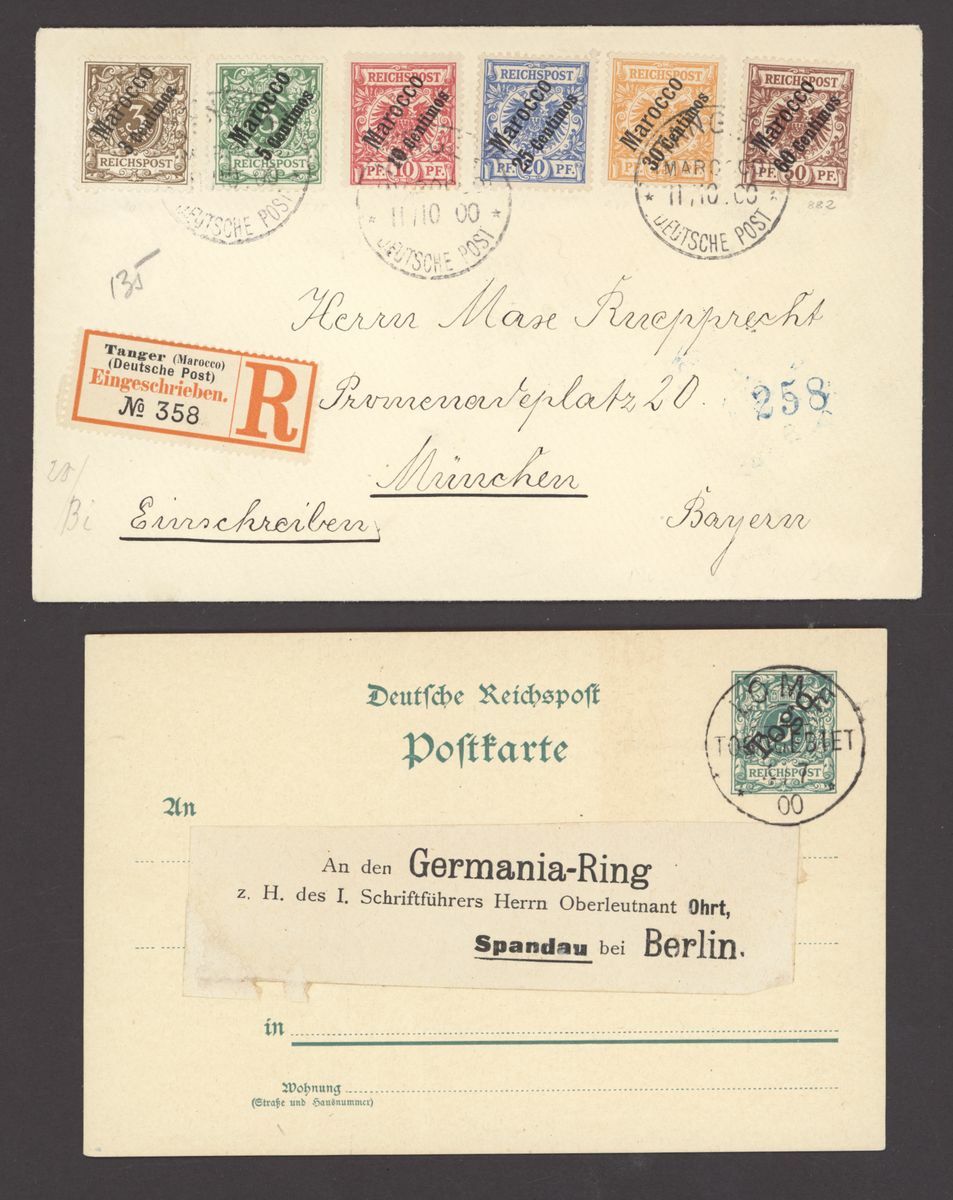 Marocco
3 Centimos
3
REICHSPOST
Marocco
5 Centimos
REICHSPOST
REICHSPOST
Marocco
10 Centimos
PF. 10 PF.
REICHSPOST
Marocco
25 Centimos
PF. 20 PF.
REICHSPOST
Marocco
30 Centimos
PF.
PF.
REICHSPOST
Marocco
60 Centimos
PF.
PF.
882
DEUTSCHE POST
* 11/10 00 *
DEUTSCHE POST
MAROCCO
11/10 00 *
DEUTSCHE POST
135
Herrn Max Ruepprecht
Promenadeplatz 20.
München
Bayern
Einschreiben
258
Tanger (Marocco)
(Deutsche Post)
Eingeschrieben.
№ 358
R
Bi
Deutsche Reichspost
Postkarte
An
5
Togo
REICHSPOST
LOME
7
00
An den Germania-Ring
z. H. des I. Schriftführers Herrn Oberleutnant Ohrt,
Spandau bei Berlin.
in
Wohnung
(Straße und Hausnummer)